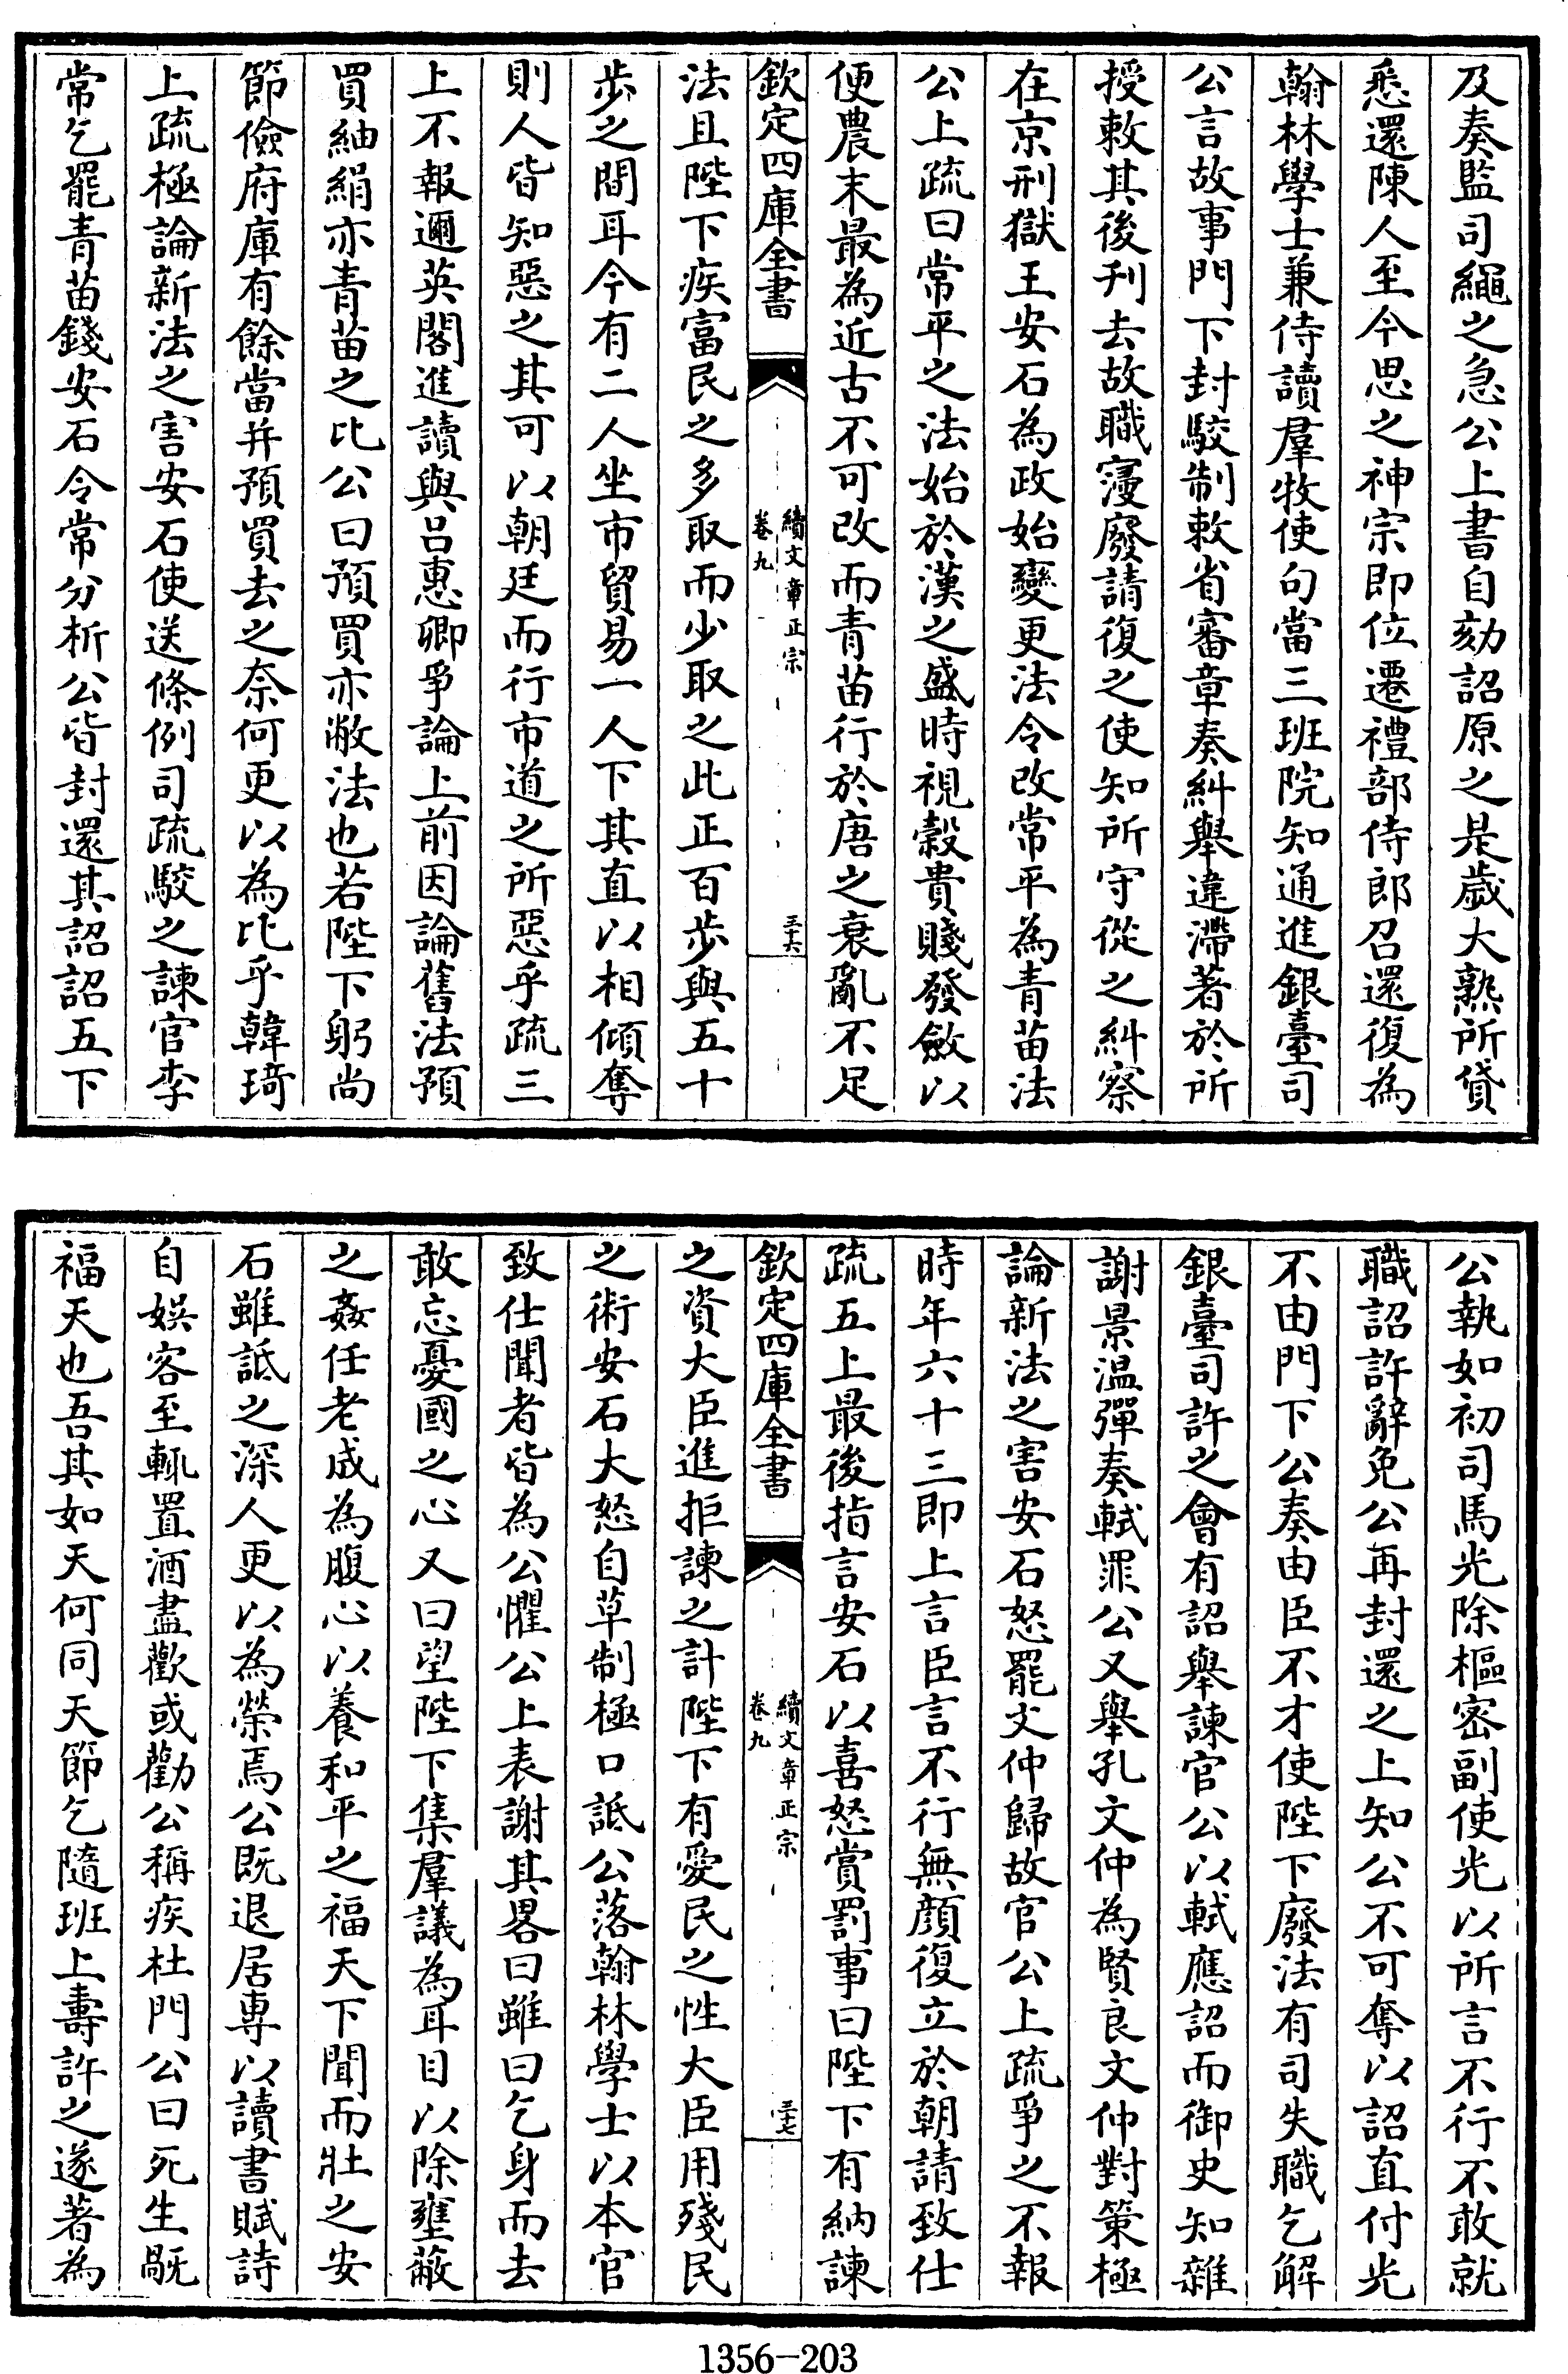 及奏監司繩之急公上書自劾詔原之是歲大熟所貸
悉還陳人至今思之神宗即位遷禮部侍郎召還復為
翰林學士兼侍讀羣牧使句當三班院知通進銀臺司
公言故事門下封駮制敕省審章奏糾舉違滯著於所
授敕其後刋去故職寖廢請復之使知所守從之糾察
在京刑獄王安石為政始變更法令改常平為青苗法
公上疏曰常平之法始於漢之盛時視穀貴賤發斂以
便農末最為近古不可改而青苗行於唐之衰亂不足
欽定四庫全書
續文章正宗
卷九
三十六
法且陛下疾富民之多取而少取之此正百步與五十
步之間耳今有二人坐市貿易一人下其直以相傾奪
則人皆知惡之其可以朝廷而行市道之所惡乎疏三
上不報邇英閣進讀與吕惠卿爭論上前因論舊法預
買紬絹亦青苗之比公曰預買亦敝法也若陛下躬尚
節儉府庫有餘當并預買去之奈何更以為比乎韓琦
上疏極論新法之害安石使送條例司疏駮之諫官李
常乞罷青苗錢安石令常分析公皆封還其詔詔五下
公執如初司馬光除樞密副使光以所言不行不敢就
職詔許辭免公再封還之上知公不可奪以詔直付光
不由門下公奏由臣不才使陛下廢法有司失職乞解
銀臺司許之會有詔舉諫官公以軾應詔而御史知雜
謝景温彈奏軾罪公又舉孔文仲為賢良文仲對策極
論新法之害安石怒罷文仲歸故官公上疏爭之不報
時年六十三即上言臣言不行無顔復立於朝請致仕
疏五上最後指言安石以喜怒賞罰事曰陛下有納諫
欽定四庫全書
續文章正宗
卷九
三十七
之資大臣進拒諫之計陛下有愛民之性大臣用殘民
之術安石大怒自草制極口詆公落翰林學士以本官
致仕聞者皆為公懼公上表謝其畧曰雖曰乞身而去
敢忘憂國之心又曰望陛下集羣議為耳目以除壅蔽
之姦任老成為腹心以養和平之福天下聞而壯之安
石雖詆之深人更以為榮焉公既退居專以讀書賦詩
自娛客至輒置酒盡歡或勸公稱疾杜門公曰死生禍
福天也吾其如天何同天節乞隨班上壽許之遂著為
1356-203